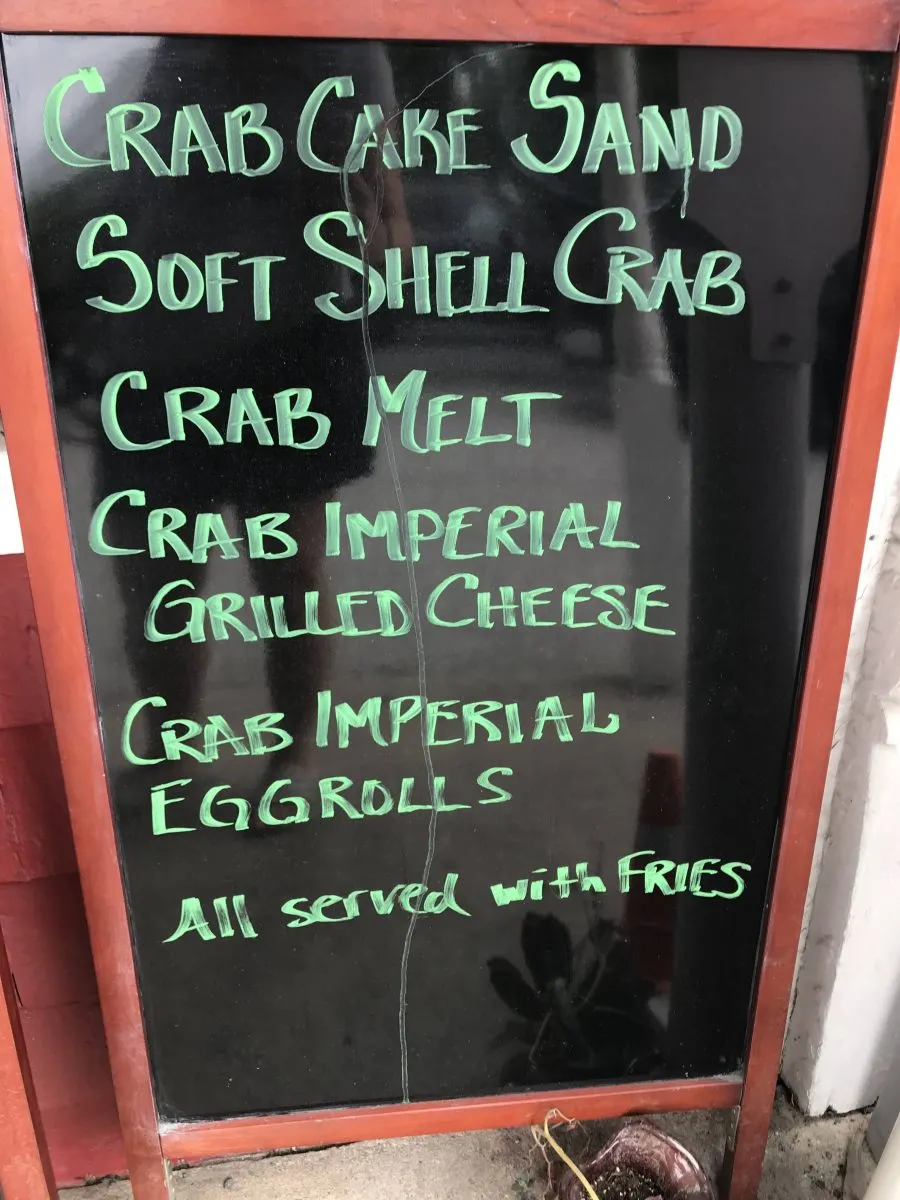 CRAB CAKE SAND
SOFT SHELL CRAB
CRAB MELT
CRAB IMPERIAL
GRILLED CHEESE
CRAB IMPERIAL
EGGROLLS
All served with FRIES